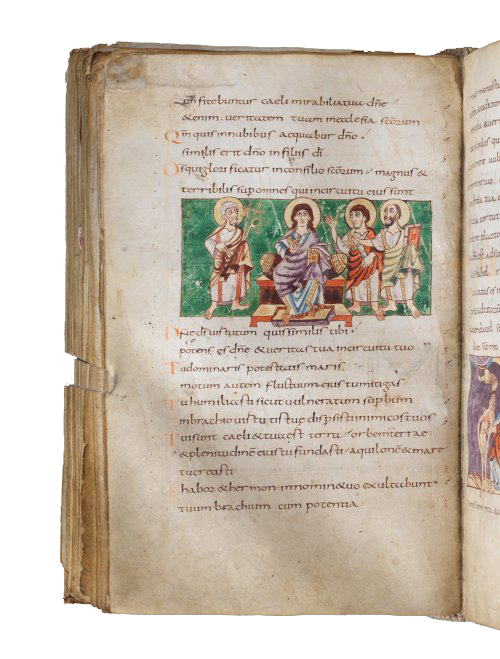 Confitebuntur caeli mirabilia tua dne
&enim veritatem tuam in ecclesia scorum
Qm quis in nubibus aequabitur dno
similis erit dno in filiis di
Ds qui glorificatur in consilio scorum magnus &
terribilis sup omnes qui in circuitu eius sunt
Dne ds virtutum quis similis tibi
potens es dne & veritas tua in circuitu tuo
Tu dominaris potestatis maris
motum autem fluctuum eius tu mitigas
Tu humiliasti sicut vulneratum supbum
in brachio virtutis tue dispsisti inimicos tuos
Tui sunt caeli & tua est terra orbem terrae
& plenitudine eius tu fundasti aquilone & mare
tu creasti
Thabor & hermon in nomine tuo exultabunt
tuum brachium cum potentia